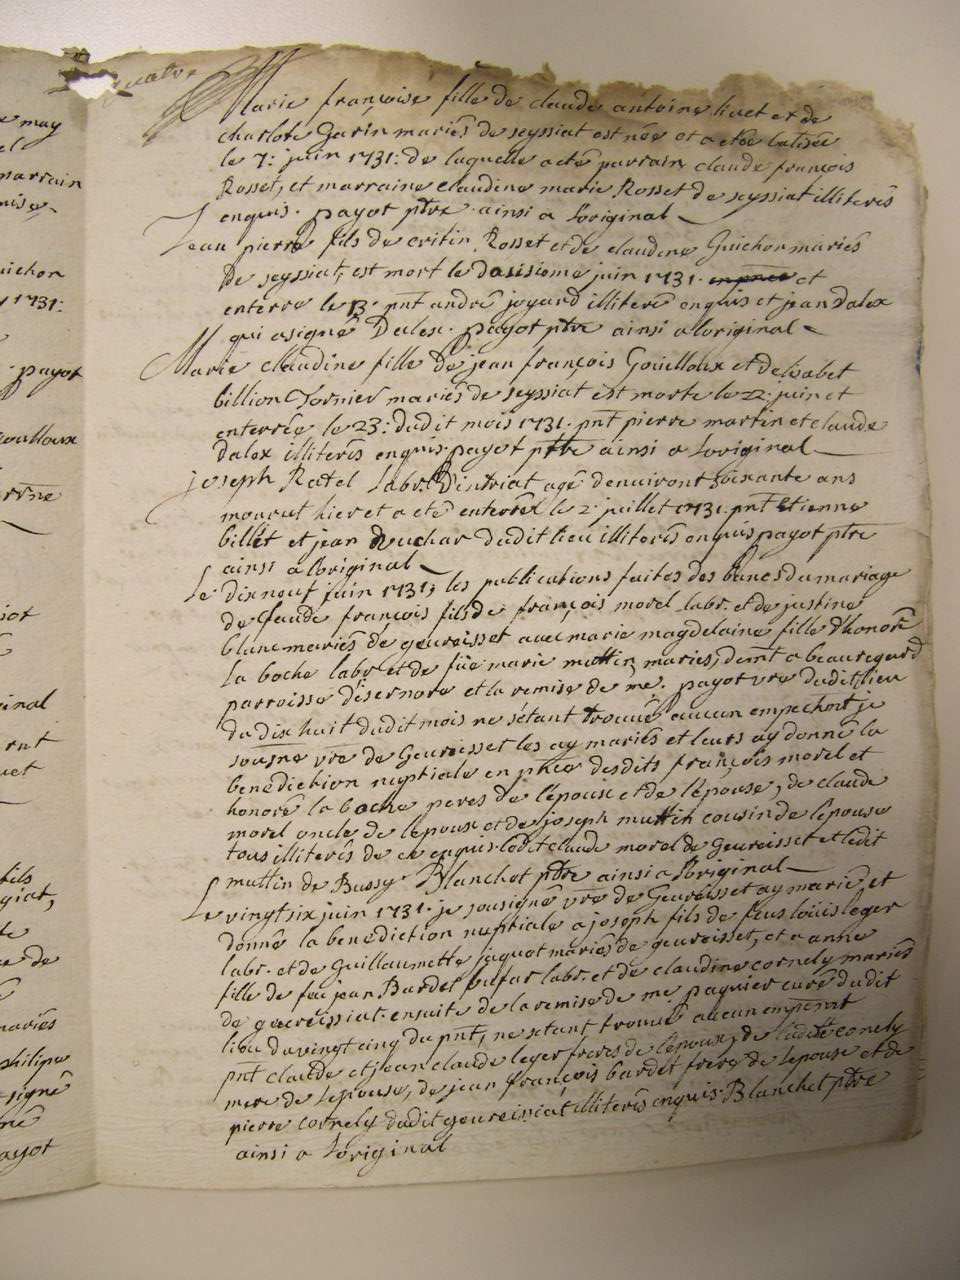 quatre
Marie françoise fille de claude antoine huet et de
charlote Garin mariés de seyssiat est née et a été batisée
le 7: juin 1731: de laquelle a été parrain claude françois
Rosset, et marraine claudine marie Rosset de seyssiat illiterés
enquis. payot ptre ainsi a Loriginal
Jean pierre fils de critin Rosset et de claudine Guichon mariés
de seyssiat, est mort le dosisieme juin 1731. et
enterré le 13. pnt andré joyard illiteré enquis et jean Dalex
qui a signé Dalex. payot ptre ainsi a loriginal
Marie claudine fille de jean françois Gouilloux et delisabet
billion Tornier mariés de seyssiat est morte le 22: juin et
enterrée le 23: dudit mois 1731. pnt pierre martin et claude
dalex illiterés enquis. payot ptre ainsi a Loriginal
joseph Ratel Labr. D'intriat agé denviront soixante ans
mourut hier et a été enterrer le 2: juillet 1731. pnt Etienne
billet et jean dudit lieu illiterés enquis payot ptre
ainsi a loriginal
Le dix neuf juin 1731, les publications faites des bancs du mariage
de claude françois fils de françois morel labr. et de justine
blanc mariés de geureisset avec marie magdelaine fille d'honoré
La boche labr et de füe marie muttin mariés, demt a beauregard
parroisse d'isernore et la remise de me. payot vre dudit lieu
du dix huit dudit mois ne s'étant trouvé aucun empechmt je
sousne vre de Geureisset les ay mariés et leurs ay donné la
benediction nuptiale en pnce desdits françois morel et
honoré la boche peres de l'epoux et de l'épouse, de claude
morel oncle de l'epoux et de joseph muttin cousin de l'epouse
tous illiterés de ce enquis. ledit claude morel de Geureisset et ledit
muttin de Bussy. Blanchet ptre ainsi a Loriginal
Le vingt six juin 1731. je sousigné vre de Geureisset ay marié et
donné la benediction nuptiale a joseph fils de feus louis leger
labr. et de Guillaumette jaquot mariés de geureisset, et a anne
fille de feu jean Bardet labr. et de claudine cornely mariés
de geureissiat. ensuite de la remise de me paquier curé dudit
lieu du vingt cinq du pnt, ne setant trouvé aucun empemt
pnt claude et jean claude leger freres de l'epoux, de ladite cornely
mere de L'epouse, de jean françois bardet frere de L'epouse et de
pierre cornely dudit geureissiat illiterés enquis. Blanchet ptre
ainsi a Loriginal